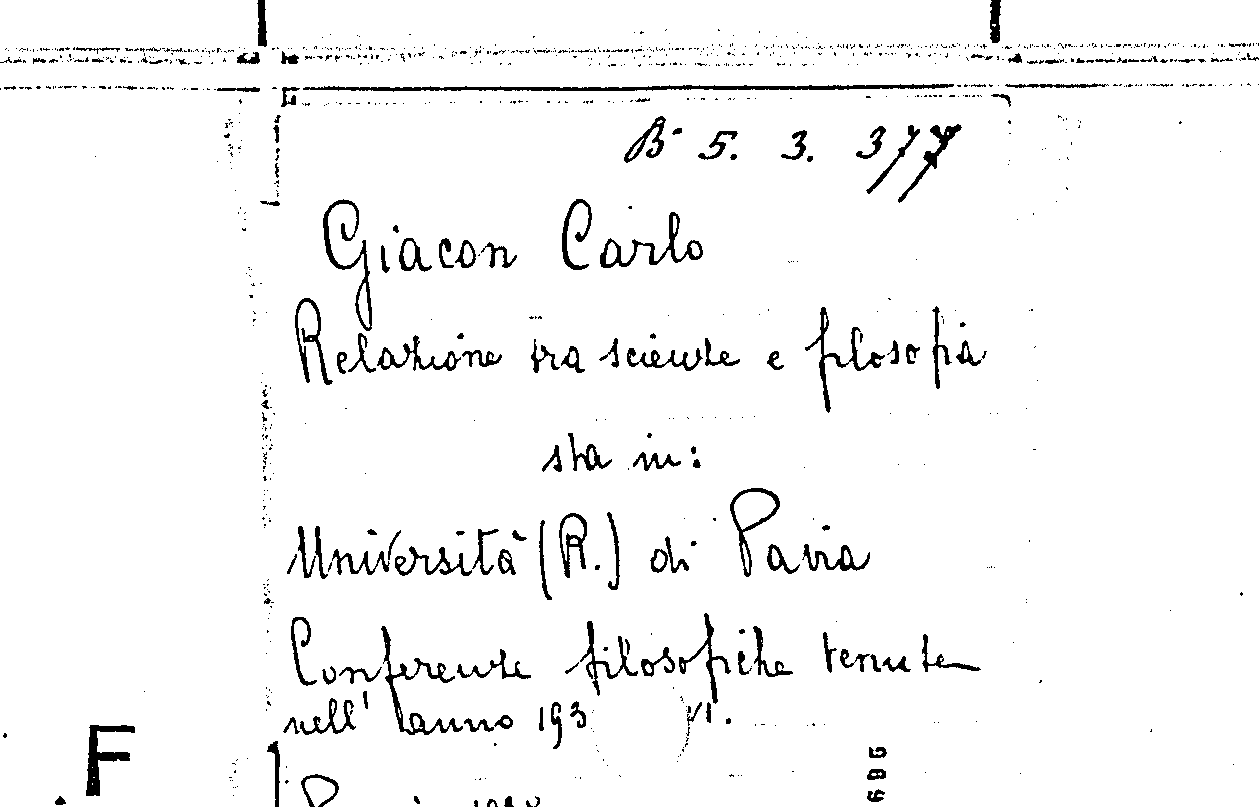 B. 5. 3. 377
Giacon Carlo
Relazione tra scienze e filosofia
sta in:
Università (R.) di Pavia
Conferenze filosofiche tenute
nell' anno 193 VI.
F